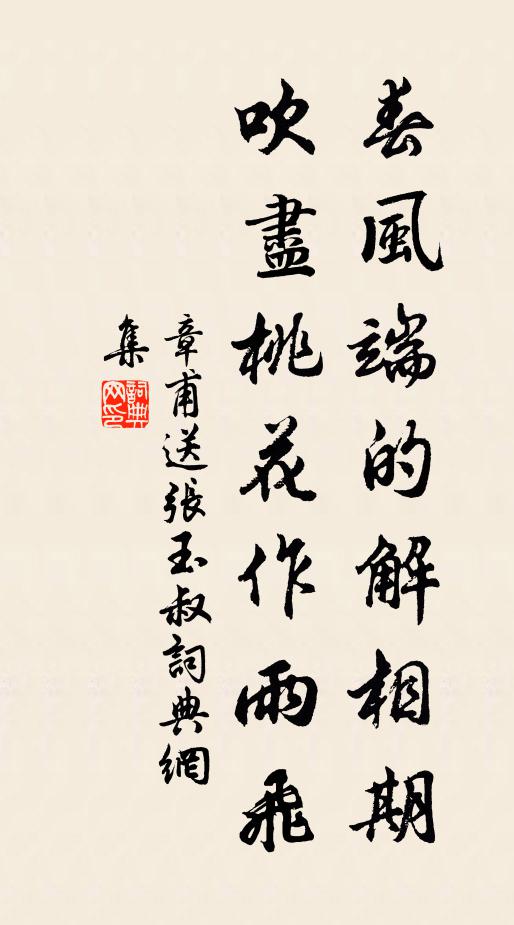 春風端的解相期
吹盡桃花作雨飛
章甫送張玉叔詞典網
集
詞典
网印